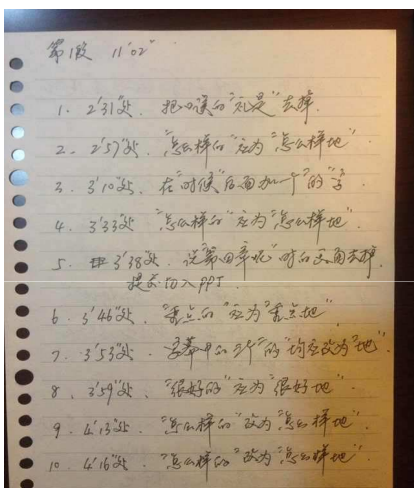 第1段 11'02"
1. 2'31"处. 把口误的"就是"去掉.
2. 2'57"处. "怎么样的"应为"怎么样地"
3. 3'10"处. 在"时候"后面加一个"的"字
4. 3'33"处 "怎么样的"应为"怎么样地".
5. 3'38"处. 说"第四章呢"时的 去掉.
提示切入PPT.
6. 3'46"处. "重点的"应为"重点地"
7. 3'53"处. 字幕中的三个"的"均应改为"地".
8. 3'59"处. "很好的"应为"很好地".
9. 4'13"处. "怎么样的"改为"怎么样地".
10. 4'16"处. "怎么样的"改为"怎么样地".